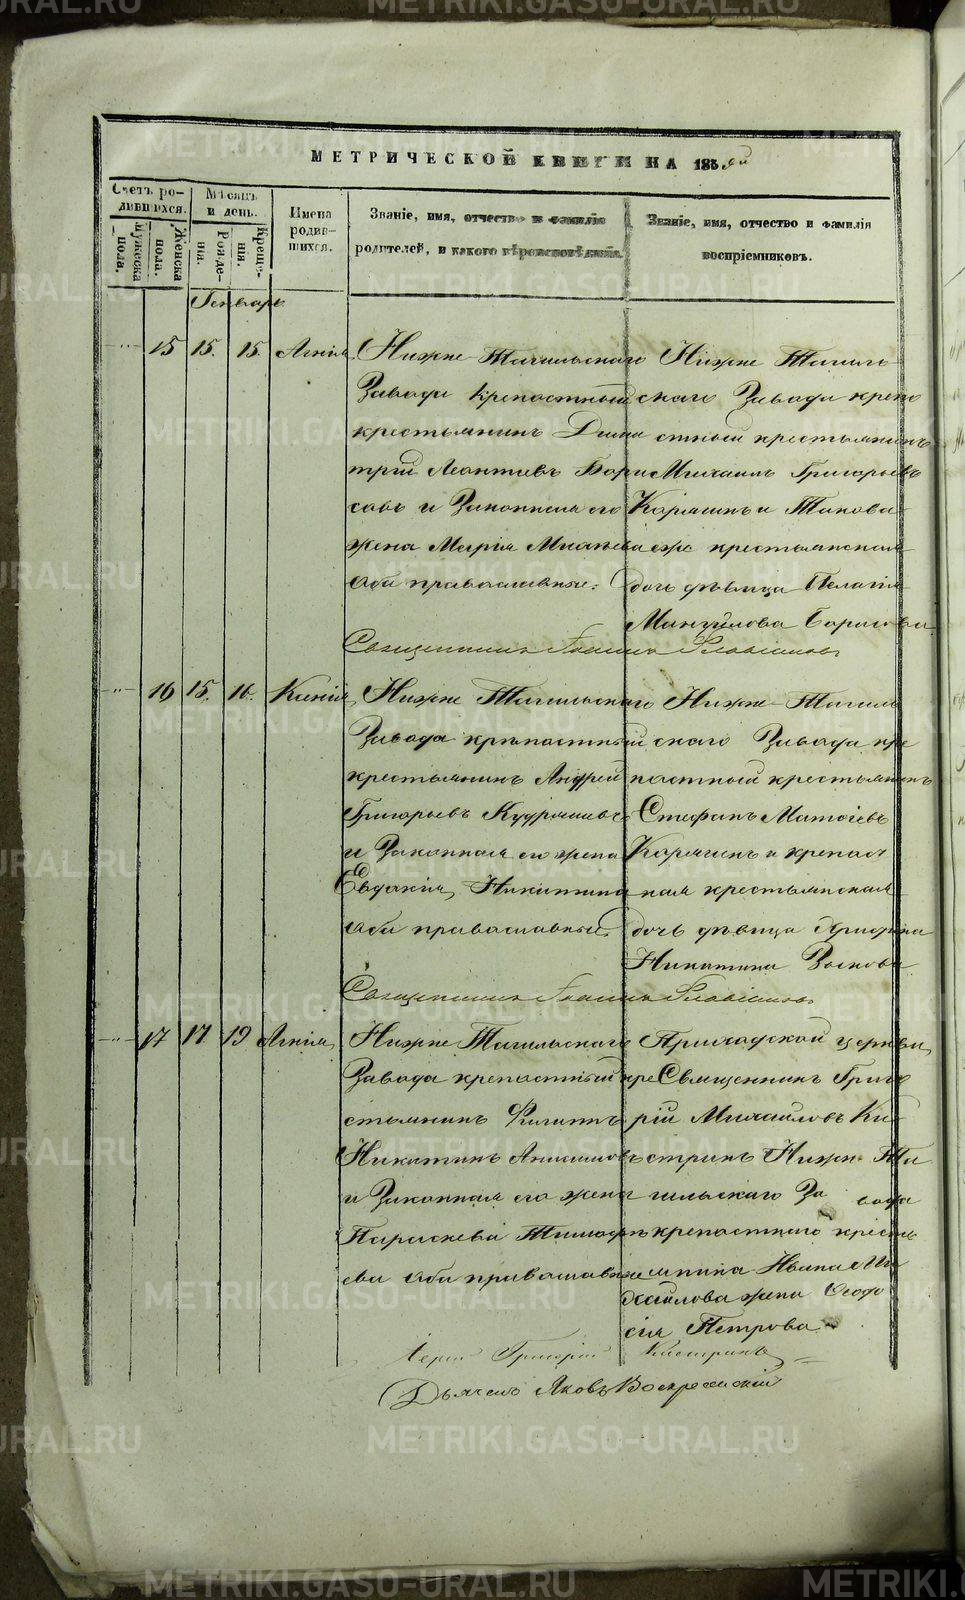 METRIKI.GASO-URAL.RU
МЕТРИЧЕСКОЙ КНИГИ НА 185 й
Счетъ ро-
дившихся.
Мѣсяцъ
и день.
Имена
родив-
шихся.
Званіе, имя, отчество и фамилія
родителей, и какого вѣроисповѣданія.
Званіе, имя, отчество и фамилія
воспріемниковъ.
Мужеска
пола.
Женска
пола.
Рожде-
нія.
Креще-
нія.
Генварь
15 15. 15. Агнія
Нижне Тагильскаго
Завода крепостный
крестьянинъ Дими
трій Леонтіевъ Бори
совъ и Законная его
жена Марія Михеева
оба православные.
Нижне Тагиль
скаго Завода крепо
стный крестьянинъ
Михаилъ Григорьевъ
Корякинъ и Такова
же крестьянская
дочь дѣвица Пелагія
Мануилова Борисова
Священникъ Іоаннъ
16 15. 16. Ксенія
Нижне Тагильскаго
Завода крѣпостный
крестьянинъ Андрей
Григорьевъ Кудряшовъ
и Законная его жена
Евдокія Никитина
оба православные
Нижне-Тагиль
скаго Завода кре
постный крестьянинъ
Стефанъ Матвіевъ
Корякинъ и крепост
ная крестьянская
дочь дѣвица
Никитина
Священникъ Іоаннъ
17 17 19 Агнія
Нижне Тагильскаго
Завода крепостный кре
стьянинъ Филиппъ
Никитинъ Анисимовъ
и Законная его жена
Параскева Тимофѣ
ева оба православные
Приходской церкви
Священникъ Григо
рій Михайловъ Ки
стринъ Нижне Та
гильскаго Завода
крепостнаго кресть
янина Ивана Ми
хайлова жена Феодо
сія Петрова
Іерей Григорій Кистринъ
Дьячекъ Яковъ Воскресенскій